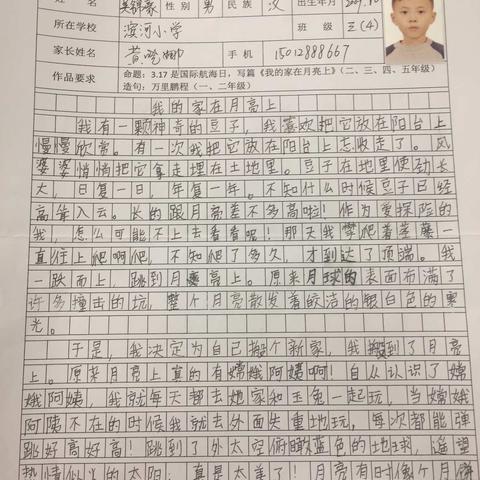 姓名 性别 男 民族 汉 出生年月
所在学校 滨河小学 三(4)
家长姓名 手机 15012888667
作品要求 命题：3.17是国际航海日，写篇《我的家在月亮上》（二、三、四、五年级）
造句：万里鹏程（一、二年级）
我的家在月亮上
我有一颗神奇的豆子，我喜欢把它放在阳台上
慢慢欣赏。有一次我把它放在阳台上忘收走了。风
婆婆悄悄把它拿走埋在土地里。豆子在地里使劲长
大，日复一日，年复一年。不知什么时候豆子已经
高耸入云。长的跟月亮差不多高啦！作为爱探险的
我，怎么可能不上去看看呢！那天我攀爬着茎藤一
直往上爬啊爬，不知爬了多久，才到达了顶端。我
一跃而上，跳到月亮上。原来月球的表面布满了
许多撞击的坑，整个月亮散发着皎洁的银白色的寒
光。
于是，我决定为自己搬个新家，我搬到了月亮
上。原来月亮上真的有嫦娥阿姨啊！自从认识了嫦
娥阿姨，我就每天都去她家和玉兔一起玩，当嫦娥
阿姨不在的时候我就去外面失重地玩，每次都能弹
跳好高好高！跳到了外太空俯瞰蓝色的地球，遥望
热情似火的太阳，真是太美了！月亮有时像个月饼